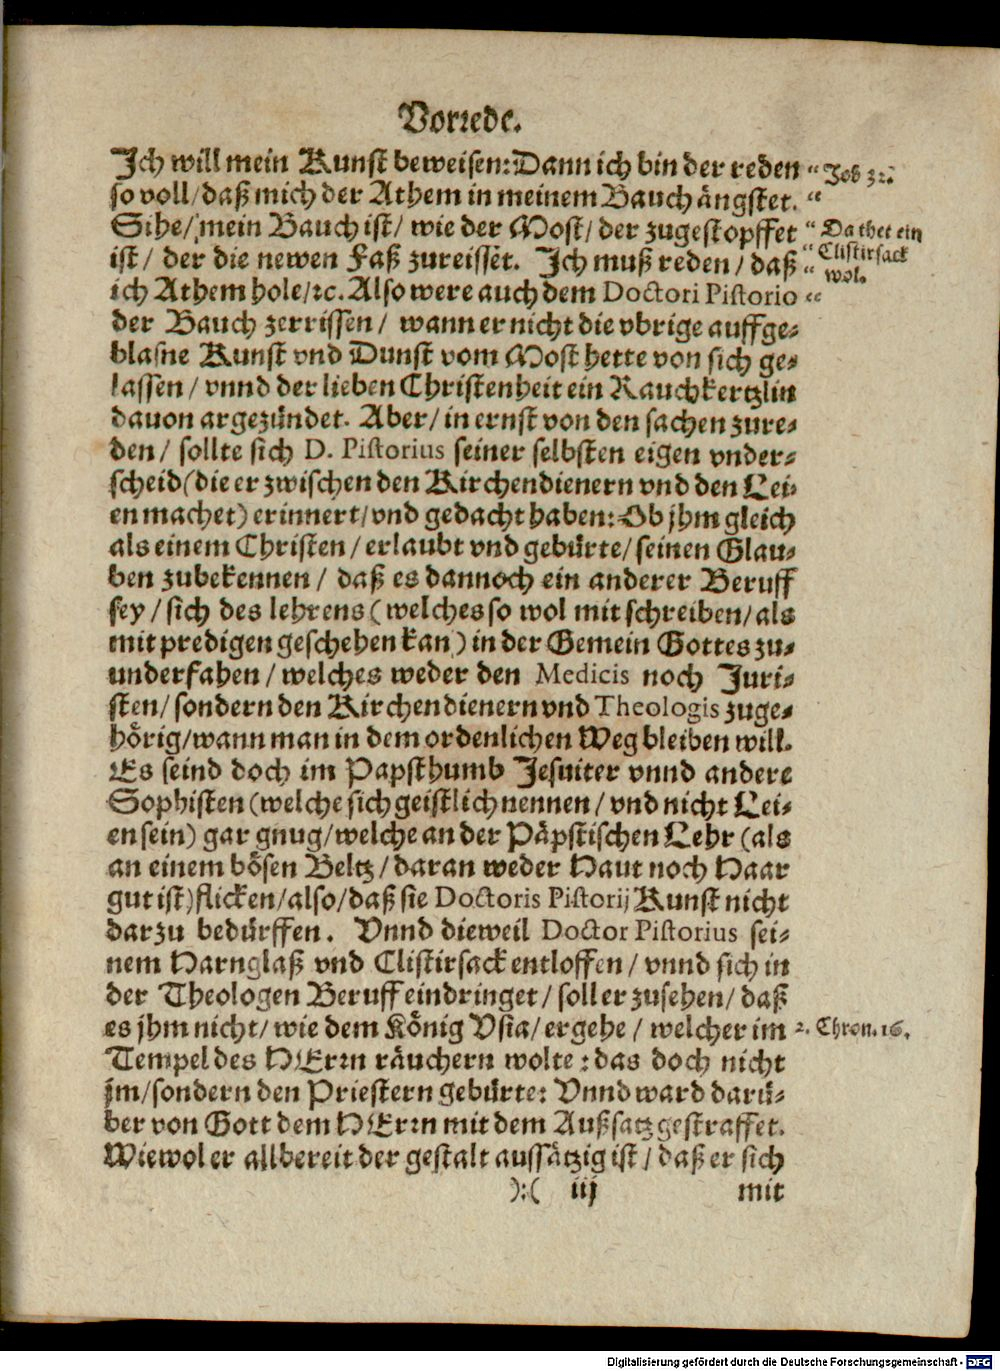 Vorrede.
Jch will mein Kunst beweisen: Dann ich bin der reden “ Job 32.
so voll/ daß mich der Athem in meinem Bauch ängstet. “
Sihe/ mein Bauch ist/ wie der Most/ der zugestopffet “ Da thet ein
ist/ der die newen Faß zureisset. Jch muß reden/ daß “ Clistirsack
wol.
ich Athem hole/ ꝛc. Also were auch dem Doctori Pistorio “
der Bauch zerrissen/ wann er nicht die vbrige auffge⸗
blasne Kunst vnd Dunst vom Most hette von sich ge⸗
lassen/ vnnd der lieben Christenheit ein Rauchkertzlin
dauon argezündet. Aber/ in ernst von den sachen zure⸗
den/ sollte sich D. Pistorius seiner selbsten eigen vnder⸗
scheid (die er zwischen den Kirchendienern vnd den Lei⸗
en machet) erinnert/ vnd gedacht haben: Ob jhm gleich
als einem Christen/ erlaubt vnd gebürte/ seinen Glau⸗
ben zubekennen/ daß es dannoch ein anderer Beruff
sey/ sich des lehrens (welches so wol mit schreiben/ als
mit predigen geschehen kan) in der Gemein Gottes zu⸗
underfahen/ welches weder den Medicis noch Juri⸗
sten/ sondern den Kirchendienern vnd Theologis zuge⸗
hörig/ wann man in dem ordenlichen Weg bleiben will.
Es seind doch im Papsthumb Jesuiter vnnd andere
Sophisten (welche sich geistlich nennen/ vnd nicht Lei⸗
en sein) gar gnug/ welche an der Päpstischen Lehr (als
an einem bösen Beltz/ daran weder Haut noch Haar
gut ist) flicken/ also/ daß sie Doctoris Pistorij Kunst nicht
darzu bedürffen. Vnnd dieweil Doctor Pistorius sei⸗
nem Harnglaß vnd Clistirsack entloffen/ vnnd sich in
der Theologen Beruff eindringet/ soll er zusehen/ daß
es jhm nicht/ wie dem König Vsia/ ergehe/ welcher im 2. Chron. 16.
Tempel des HErꝛn räuchern wolte: das doch nicht
jm/ sondern den Priestern gebürte: Vnnd ward darü⸗
ber von Gott dem HErꝛn mit dem Außsatz gestraffet.
Wiewol er allbereit der gestalt aussätzig ist/ daß er sich
):( iij mit
Digitalisierung gefördert durch die Deutsche Forschungsgemeinschaft - DFG